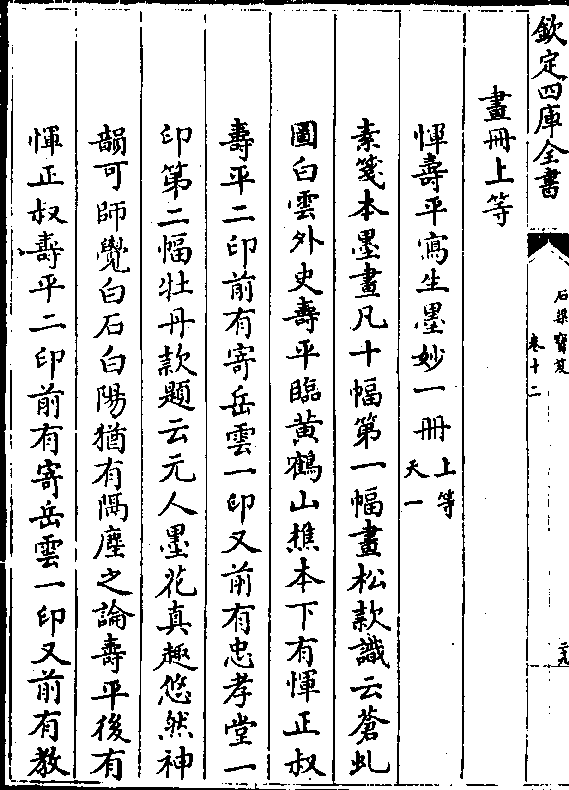 欽定四庫全書
石渠寶笈
卷十二
二十九
畫冊上等
惲壽平寫生墨妙一冊上等天一
素箋本墨畫凡十幅第一幅畫松款識云蒼虬
圖白雲外史壽平臨黃鶴山樵本下有惲正叔
壽平二印前有寄岳雲一印又前有忠孝堂一
印第二幅牡丹款題云元人墨花真趣悠然神
韻可師覺白石白陽猶有隔塵之論壽平後有
惲正叔壽平二印前有寄岳雲一印又前有教